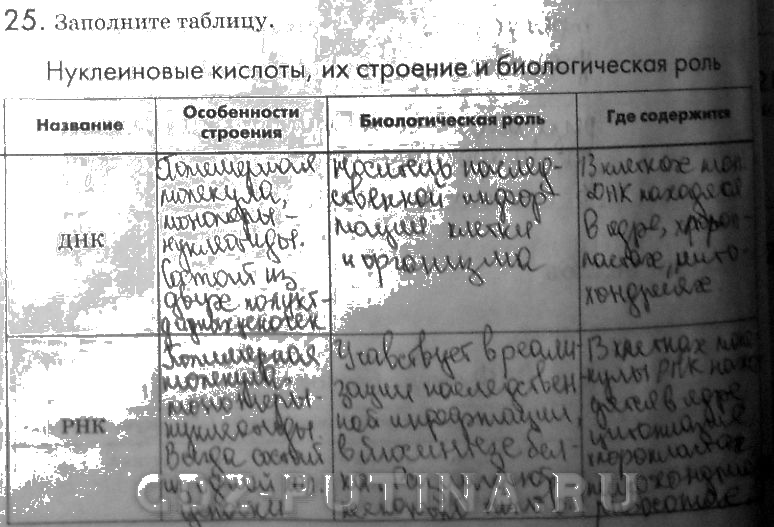 25. Заполните таблицу.
Нуклеиновые кислоты, их строение и биологическая роль
Название
Особенности
строения
Биологическая роль
Где содержится
ДНК
Полимерная
молекула,
мономеры –
нуклеотиды.
Состоит из
двух полинуклео-
Носитель наслед-
ственной инфор
мации клетки
и организма
В клетках мол.
ДНК находятся
в ядре, хлороп
ластах, мито-
хондриях
РНК
Полимерная
молекула,
мономеры
нуклеотиды
Всегда состоит
из одной
цепочки
Участвует в реали
зации наследствен
ной информации,
в биосинтезе бел-
ка.
В клетках моле
кулы РНК нахо
дятся в ядре
цитоплазме
хлоропластах
рибосомах
GDZ-PUTINA.RU